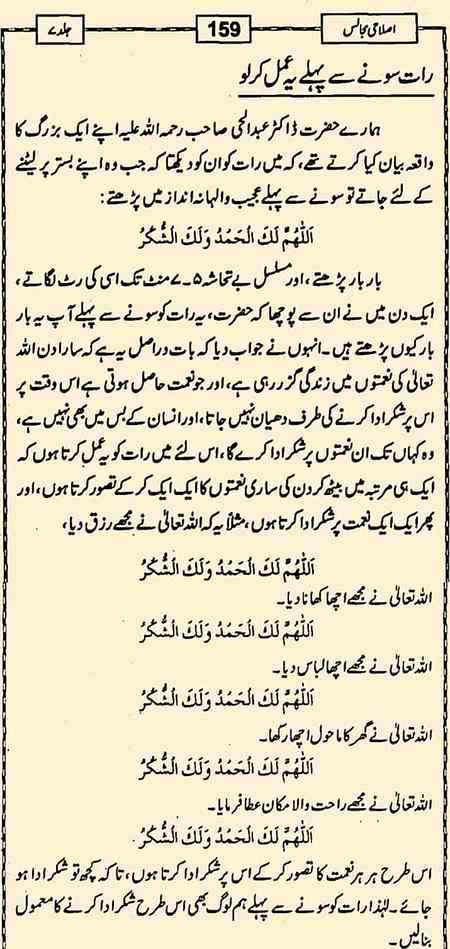 اصلاحی مجالس
159
جلد ۷
رات سونے سے پہلے یہ عمل کرلو
ہمارے حضرت ڈاکٹر عبدالحئی صاحب رحمۃ اللہ علیہ اپنے ایک بزرگ کا
واقعہ بیان کیا کرتے تھے، کہ میں رات کو ان کو دیکھتا کہ جب وہ اپنے بستر پر لیٹنے
کے لئے جاتے تو سونے سے پہلے عجیب والہانہ انداز میں پڑھتے:
اَللّٰهُمَّ لَكَ الْحَمْدُ وَلَكَ الشُّكْرُ
بار بار پڑھتے، اور مسلسل بے تحاشہ ۵۔۷ منٹ تک اسی کی رٹ لگاتے،
ایک دن میں نے ان سے پوچھا کہ حضرت، یہ رات کو سونے سے پہلے آپ یہ بار
بار کیوں پڑھتے ہیں۔ انہوں نے جواب دیا کہ بات دراصل یہ ہے کہ سارا دن اللہ
تعالیٰ کی نعمتوں میں زندگی گزر رہی ہے، اور جو نعمت حاصل ہوتی ہے اس وقت پر
اس پر شکر ادا کرنے کی طرف دھیان نہیں جاتا، اور انسان کے بس میں بھی نہیں ہے،
وہ کہاں تک ان نعمتوں پر شکر ادا کرے گا، اس لئے میں رات کو یہ عمل کرتا ہوں کہ
ایک ہی مرتبہ میں بیٹھ کر دن کی ساری نعمتوں کا ایک ایک کر کے تصور کرتا ہوں، اور
پھر ایک ایک نعمت پر شکر ادا کرتا ہوں، مثلاً یہ کہ اللہ تعالیٰ نے مجھے رزق دیا،
اَللّٰهُمَّ لَكَ الْحَمْدُ وَلَكَ الشُّكْرُ
اللہ تعالیٰ نے مجھے اچھا کھانا دیا۔
اَللّٰهُمَّ لَكَ الْحَمْدُ وَلَكَ الشُّكْرُ
اللہ تعالیٰ نے مجھے اچھا لباس دیا۔
اَللّٰهُمَّ لَكَ الْحَمْدُ وَلَكَ الشُّكْرُ
اللہ تعالیٰ نے گھر کا ماحول اچھا رکھا۔
اَللّٰهُمَّ لَكَ الْحَمْدُ وَلَكَ الشُّكْرُ
اللہ تعالیٰ نے مجھے راحت والا مکان عطا فرمایا۔
اَللّٰهُمَّ لَكَ الْحَمْدُ وَلَكَ الشُّكْرُ
اس طرح ہر ہر نعمت کا تصور کر کے اس پر شکر ادا کرتا ہوں، تاکہ کچھ تو شکر ادا ہو
جائے۔ لہٰذا رات کو سونے سے پہلے ہم لوگ بھی اس طرح شکر ادا کرنے کا معمول
بنالیں۔